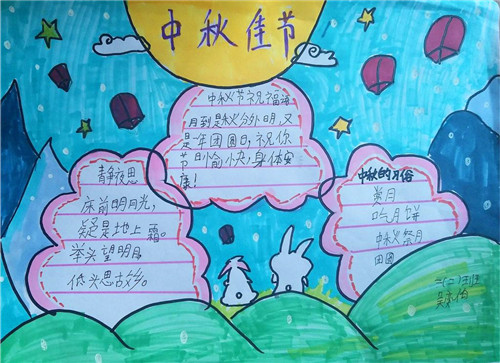 中秋佳节
中秋节祝福语
月到是秋分外明,又
是一年团圆日,祝你
节日愉快,身体安
康!
静夜思
床前明月光,
疑是地上霜。
举头望明月
低头思故乡。
中秋的习俗
赏月
吃月饼
中秋祭月